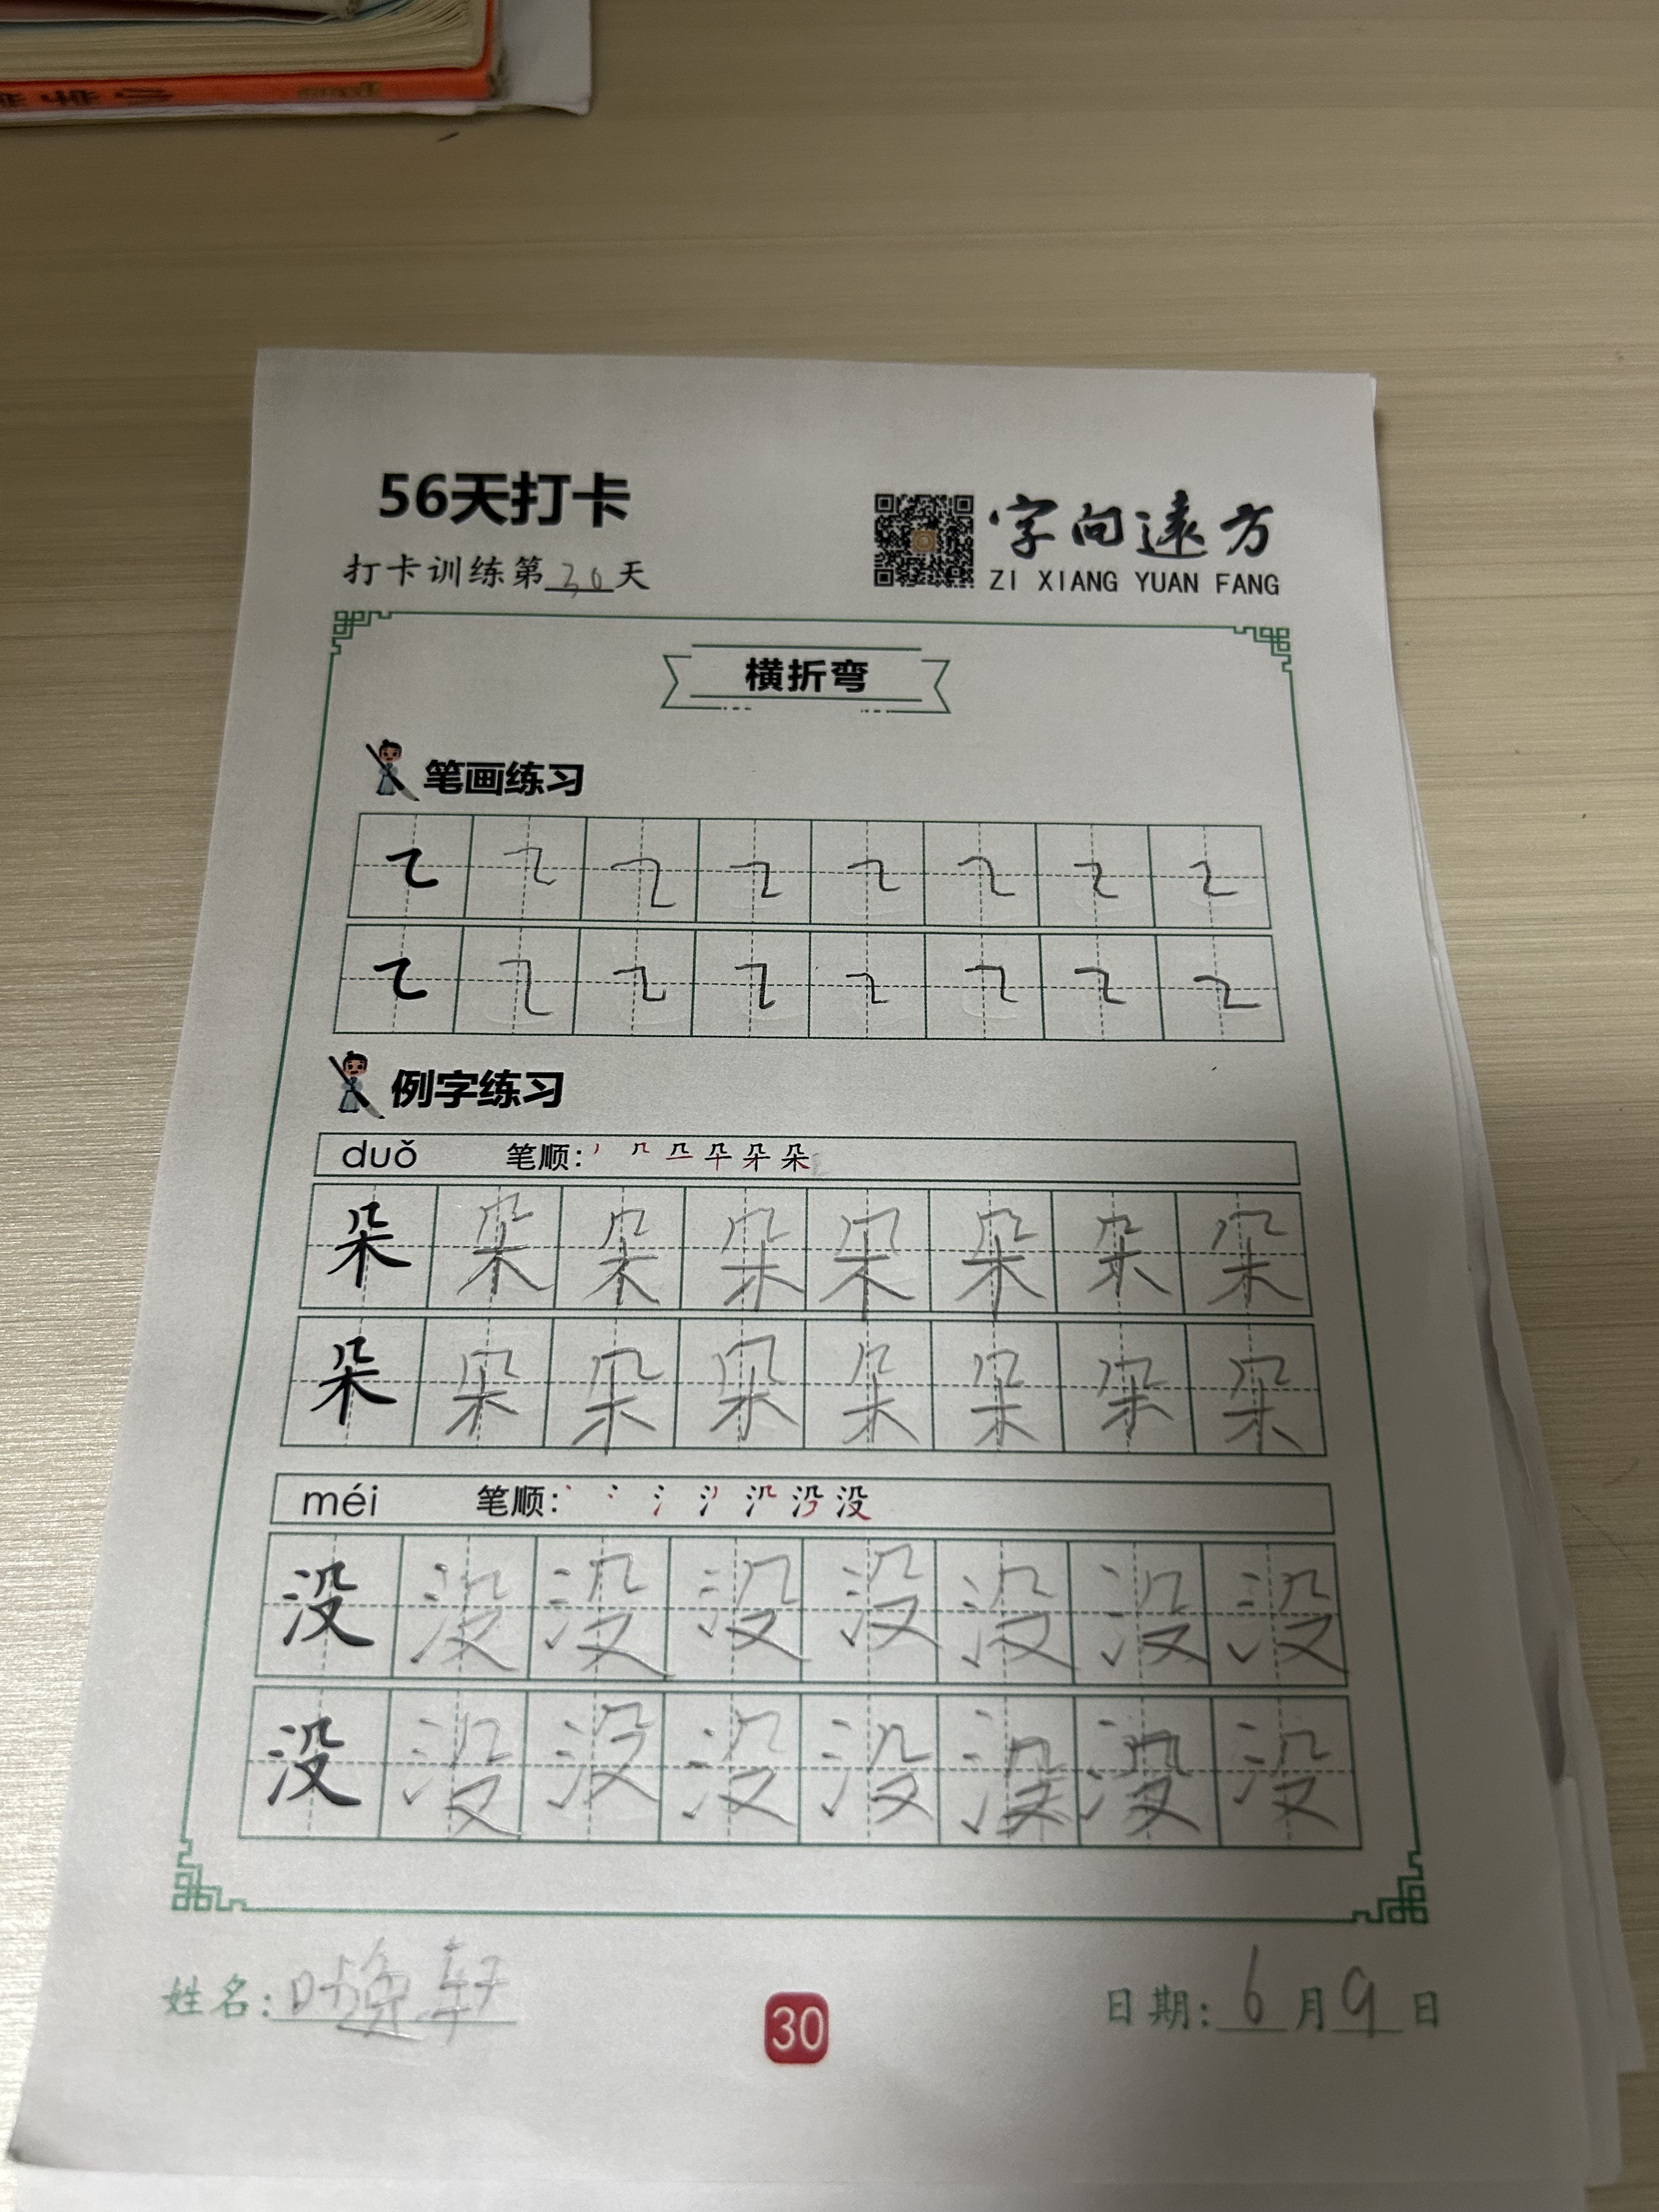 56天打卡
字向遠方
打卡训练第30天
ZI XIANG YUAN FANG
横折弯
笔画练习
例字练习
duǒ 笔顺:
朵 朵 朵 朵 朵 朵 朵 朵
朵 朵 朵 朵 朵 朵 朵 朵
méi 笔顺:
没 没 没 没 没 没 没 没
没 没 没 没 没 没 没 没
姓名:叶逸轩
30
日期:6月9日